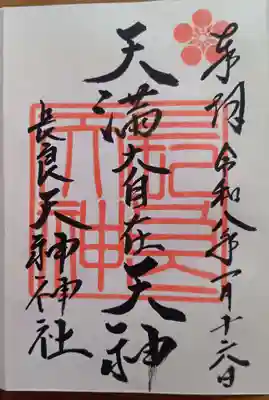 奉拝 令和八年一月十六日
天満大自在天神
長良天神神社